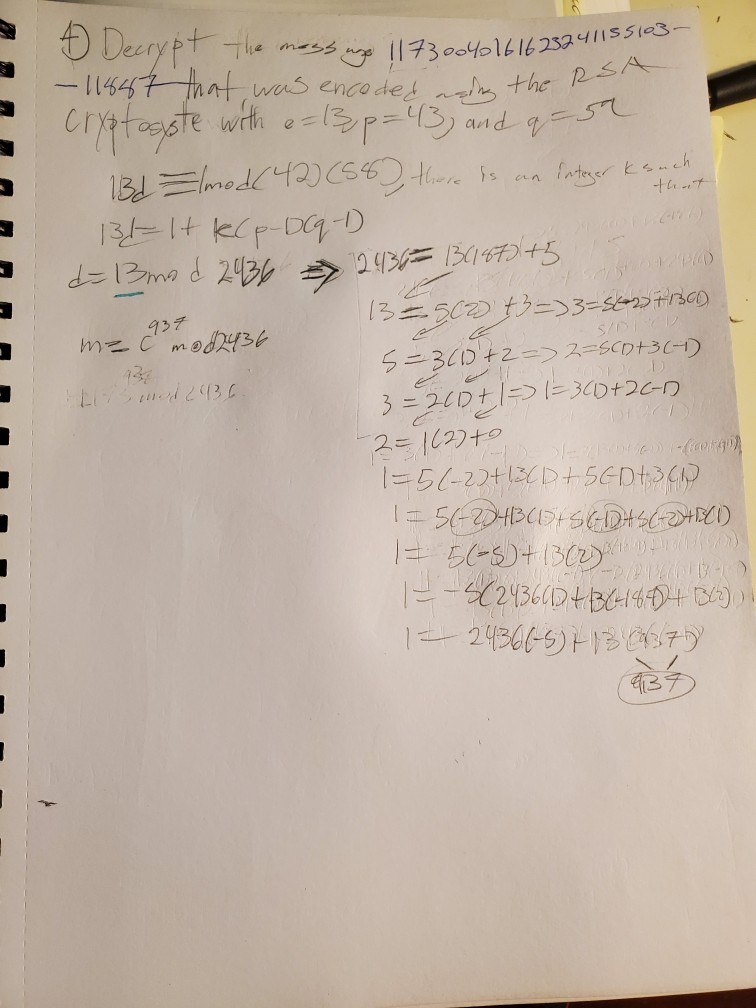 4) Decrypt the message 11730040161623241155103-
-11887 that was encoded using the RSA
cryptosyste with e=13, p=43, and q=59
13d≡1mod(42)(58), there is an integer k such
that
13d=1+k(p-1)(q-1)
d=13mod 2436 ⇒ 2436=13(187)+5
13=5(2)+3=>3=5(-2)+13(1)
m≡c^937 mod2436
5=3(1)+2=>2=5(1)+3(-1)
3=2(1)+1=>1=3(1)+2(-1)
2=1(2)+0
1=5(-2)+13(1)+5(-1)+3(1)
1=5(-2)+13(1)+5(-1)+5(-2)+13(1)
1=5(-5)+13(2)
1=-5(2436(1)+13(-187))+13(2)
1=2436(-5)+13(937)
937